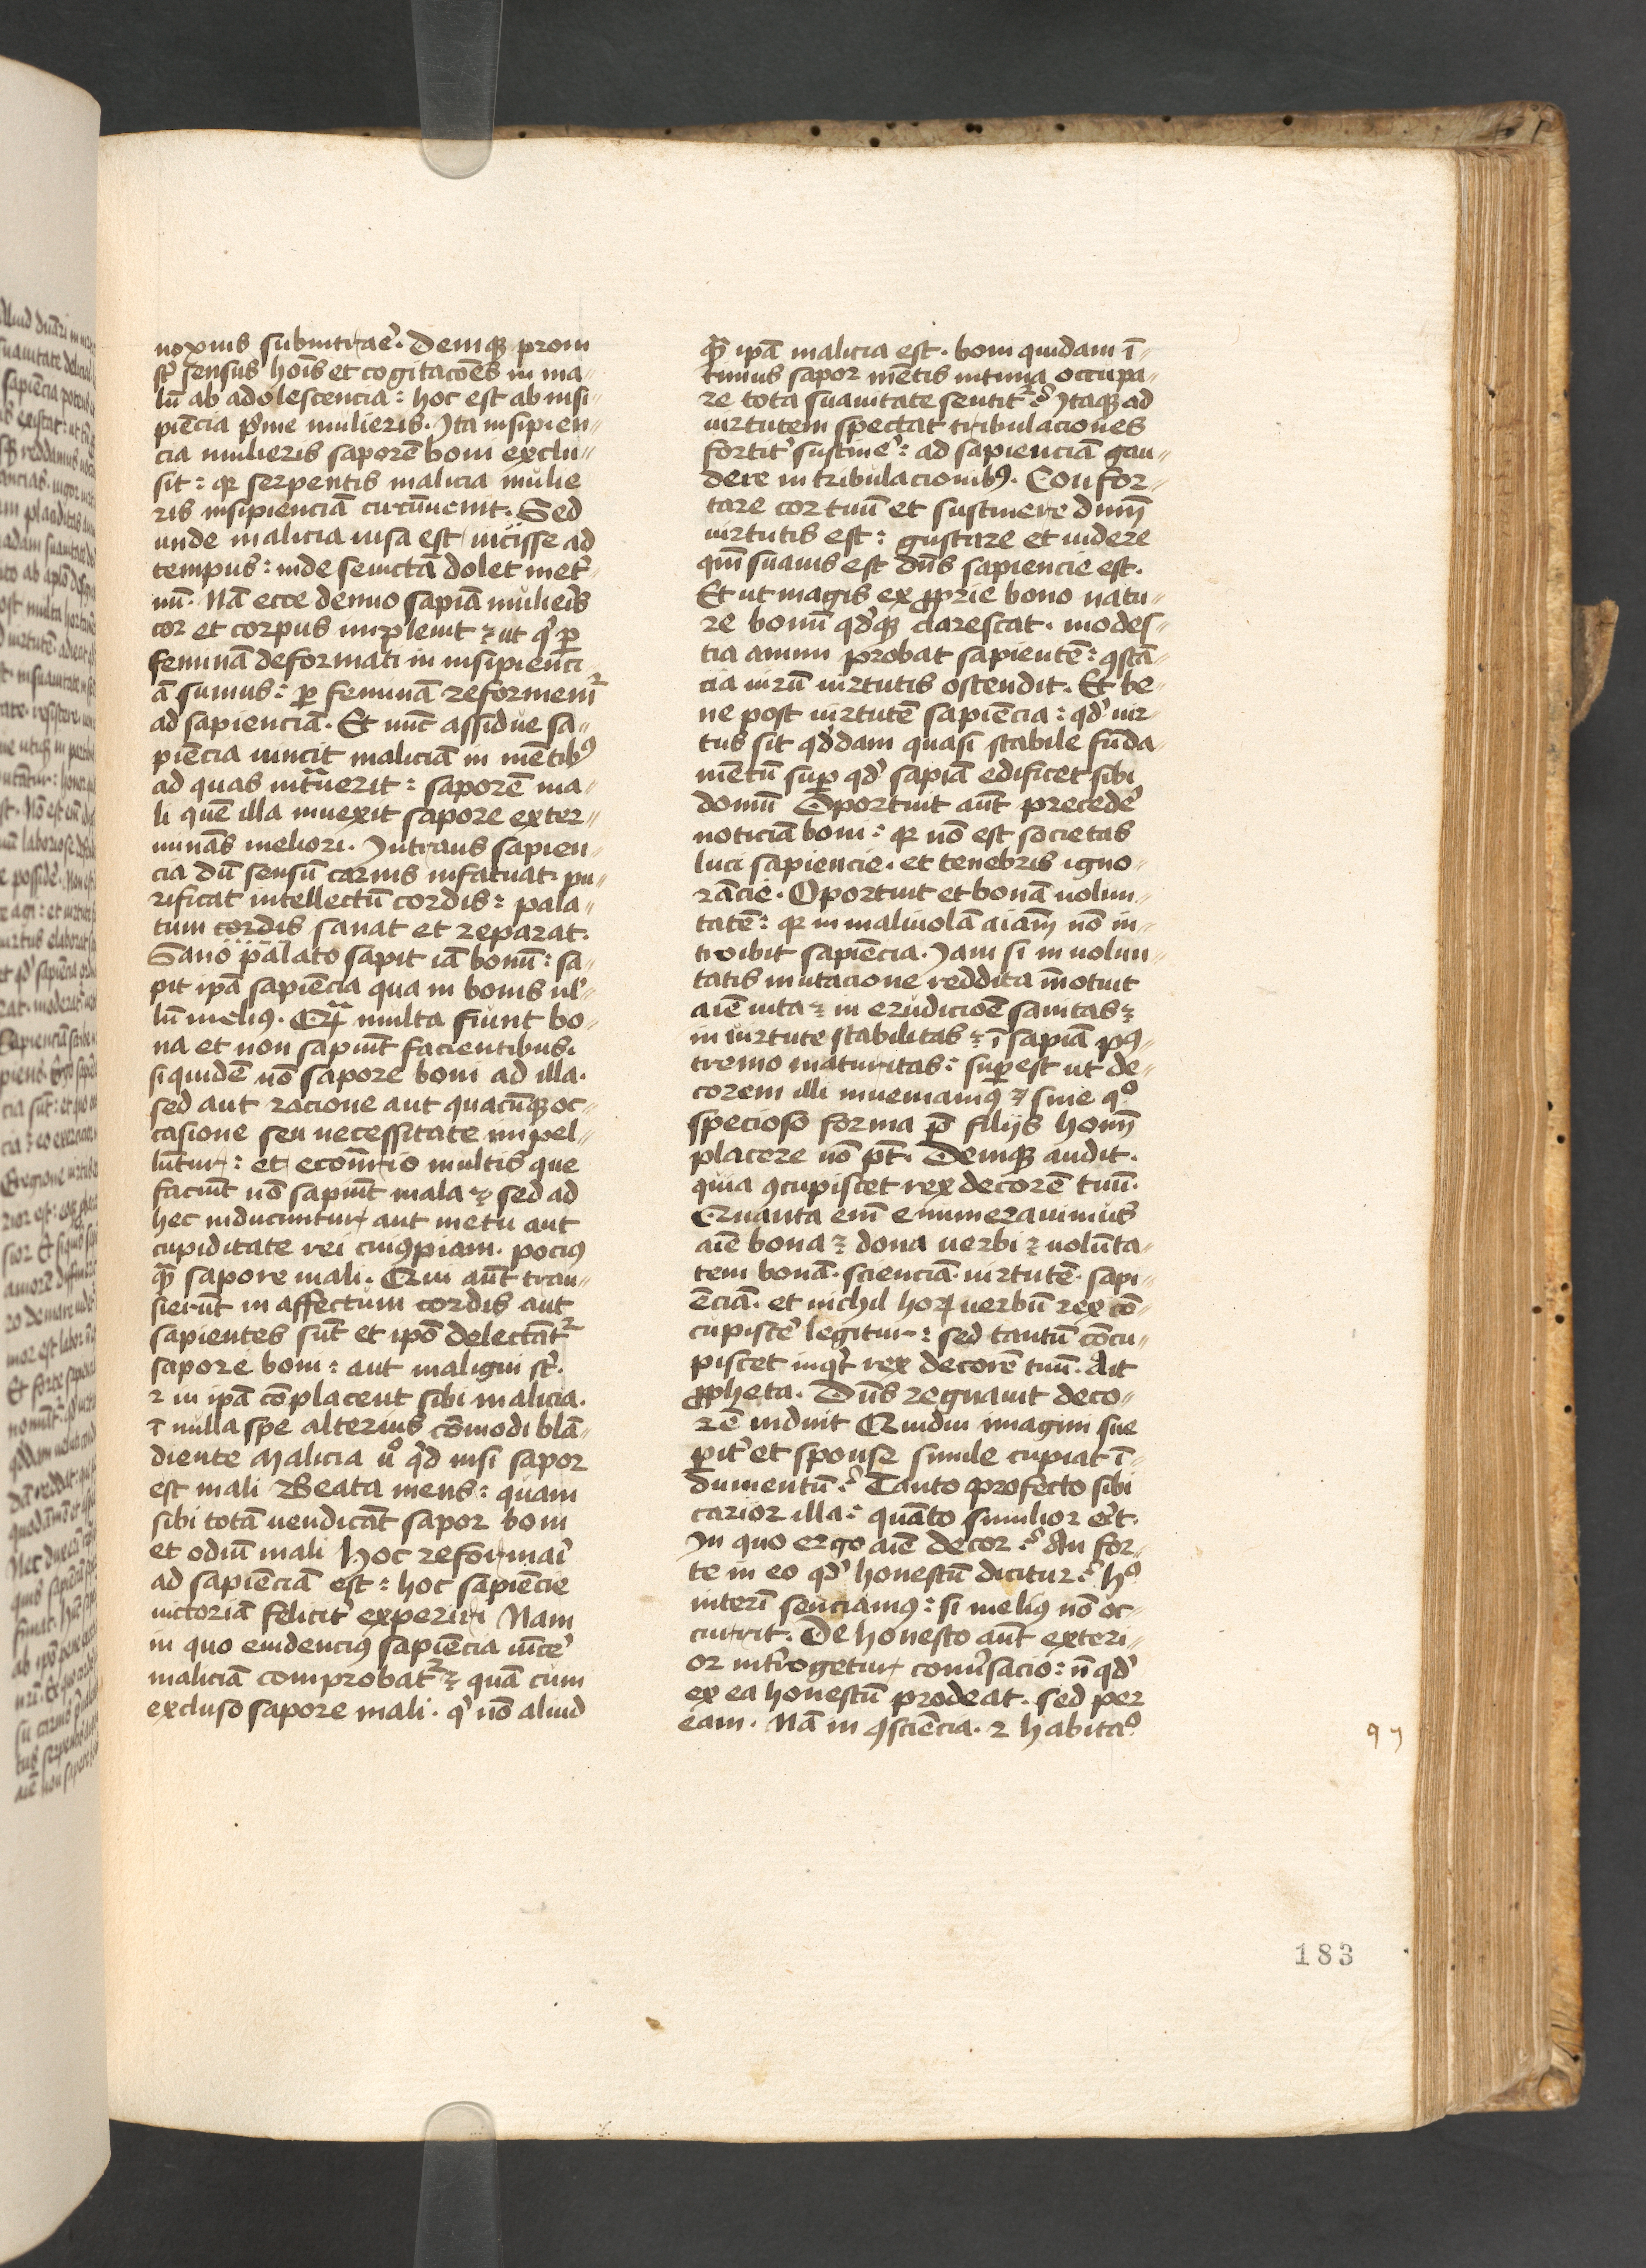 noxius subintrae᷒. Deniq₃ proni
st᷒ sensus hoīs et cogitacōes in ma〃
lū ab adolescencia: hoc est ab insi〃
piēcia p᷒me mulieris. Ita insipien〃
cia mulieris saporē boni exclu〃
sit: qꝛ serpentis malicia mulie
ris insipienciā circūuenit. Sed
unde malicia uisa est uicisse ad
tempus: inde se uictā dolet inet᷒〃
nū. Nā ecce denuo sapiā mulieris
cor et corpus impleuit ⁊ ut q᷒ ꝑ
feminā deformati in insipienci〃
ā sumus: ꝑ feminā reformem᷑
ad sapienciā. Et nūc assidue sa〃
piēcia uincit maliciā in mētibꝰ
ad quas intᵃuerit: saporē ma〃
li quē illa inuexit sapore exter〃
minās meliori. Intrans sapien〃
cia dū sensū carnis infatuat pu〃
rificat intellectū cordis: pala〃
tum cordis sanat et reparat.
Sano palato sapit iā bonū: sa〃
pit ipā sapiēcia qua in bonis ul᷒〃
lū meliꝰ. Qᵃꝫ multa fiunt bo〃
na et non sapiūt facientibus.
siquidē nō sapore boni ad illa.
sed aut racione aut quacūq₃ oc〃
casione seu necessitate impel〃
lūtur: et ecōtrario multis que
faciūt nō sapiūt mala ⁊ sed ad
hec inducuntur aut metu aut
cupiditate rei cuiꝰpiam. pociꝰ
qꝫ̄ sapore mali. Qui aūt tran〃
sierūt in affectum cordis aut
sapientes sūt et ipō delectāt᷑
sapore boni: aut maligni st᷒.
⁊ in ipā cōplacent sibi malicia.
⁊ nulla spe alterius cōmodi blā〃
diente Malicia u᷒o q᷒d nisi sapor
est mali Beata mens: quam
sibi totā uendicāt sapor boni
et odiū mali Hoc reformari᷒
ad sapiēciā est: hoc sapiēcie
uictoriā felicit᷒ experiri Nam
in quo euidenciꝰ sapiēcia uīce᷒
maliciā comprobat᷑ ⁊ quā cum
excluso sapore mali. q᷒ nō aliud
qꝫ̄ ipā malicia est. boni quidam ī〃
timus sapor mētis intima occupa〃
re tota suauitate sentit᷑? Itaq₃ ad
uirtutem spectat tribulaciones
fortit᷒ sustine᷒: ad sapienciā gau〃
dere in tribulacionibꝰ. Confor〃
tare cor tuū et sustinere dnm̄
uirtutis est: gustare et uidere
qm̄ suauis est dn̄s sapiencie est.
Et ut magis ex ꝓprie bono natu〃
re bonū qd᷒q₃ clarescat. modes〃
tia animi probat sapientē: ꝯstā〃
cia uirū uirtutis ostendit. Et be〃
ne post uirtutē sapiēcia: qd᷒ uir〃
tus sit qd᷒dam quasi stabile fūda〃
mētū suꝑ qd᷒ sapiā edificet sibi
domū Oportuit aūt precede᷒
noticiā boni: qꝛ nō est societas
luci sapiencie. et tenebris igno〃
rācie. Oportuit et bonā uolun〃
tatē: qꝛ in maliuolā aiām nō in〃
troibit sapiēcia. Iam si in uolun〃
tatis mutacione reddita īnotuit
aīe uita ⁊ in erudicioē sanitas ⁊
in uirtute stabilitas ⁊ ī sapiā pꝰ〃
tremo maturitas: suꝑest ut de〃
corem illi inueniamꝰ ⁊ sine qº
specioso forma p̄ filijs homī
placere nō pt̄. Deniq₃ audit.
quia ꝯcupiscet rex decorē tuū.
Quanta em̄ enumerauimus
aīe bona ⁊ dona uerbi ⁊ uolūta〃
tem bonā. scienciā. uirtutē. sapi〃
ēciā. et nichil hoꝝ uerbū rex cō〃
cupisce᷒ legitur: sed tantū cōcu〃
piscet inq᷒t rex decorē tuū. Ait
ꝓpheta. Dn̄s regnauit deco〃
rē induit Quidni imagini sue
ꝑit᷒ et sponse simile cupiat ī〃
dumentū? Tanto profecto sibi
carior illa: quāto similior erit.
In quo ergo aīe decor? An for〃
te in eo qd᷒ honestū dicitur? hº
interī senciamꝰ: si meliꝰ nō oc〃
currit. De honesto aūt exteri〃
or int᷒rogetur conu᷒sacio: n̄ qd᷒
ex ea honestū prodeat. sed per
eam. Nā in ꝯsciēcia. ⁊ habitaº
183